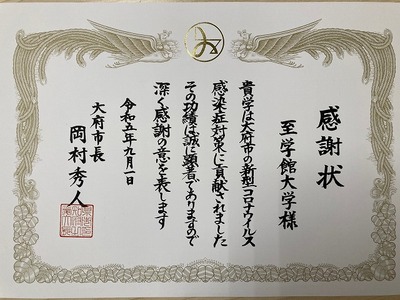 感謝状
至学館大学様
貴学は大府市の新型コロナウイルス
感染症対策に貢献されました
その功績は誠に顕著でありますので
深く感謝の意を表します
令和五年九月一日
大府市長
岡村秀人